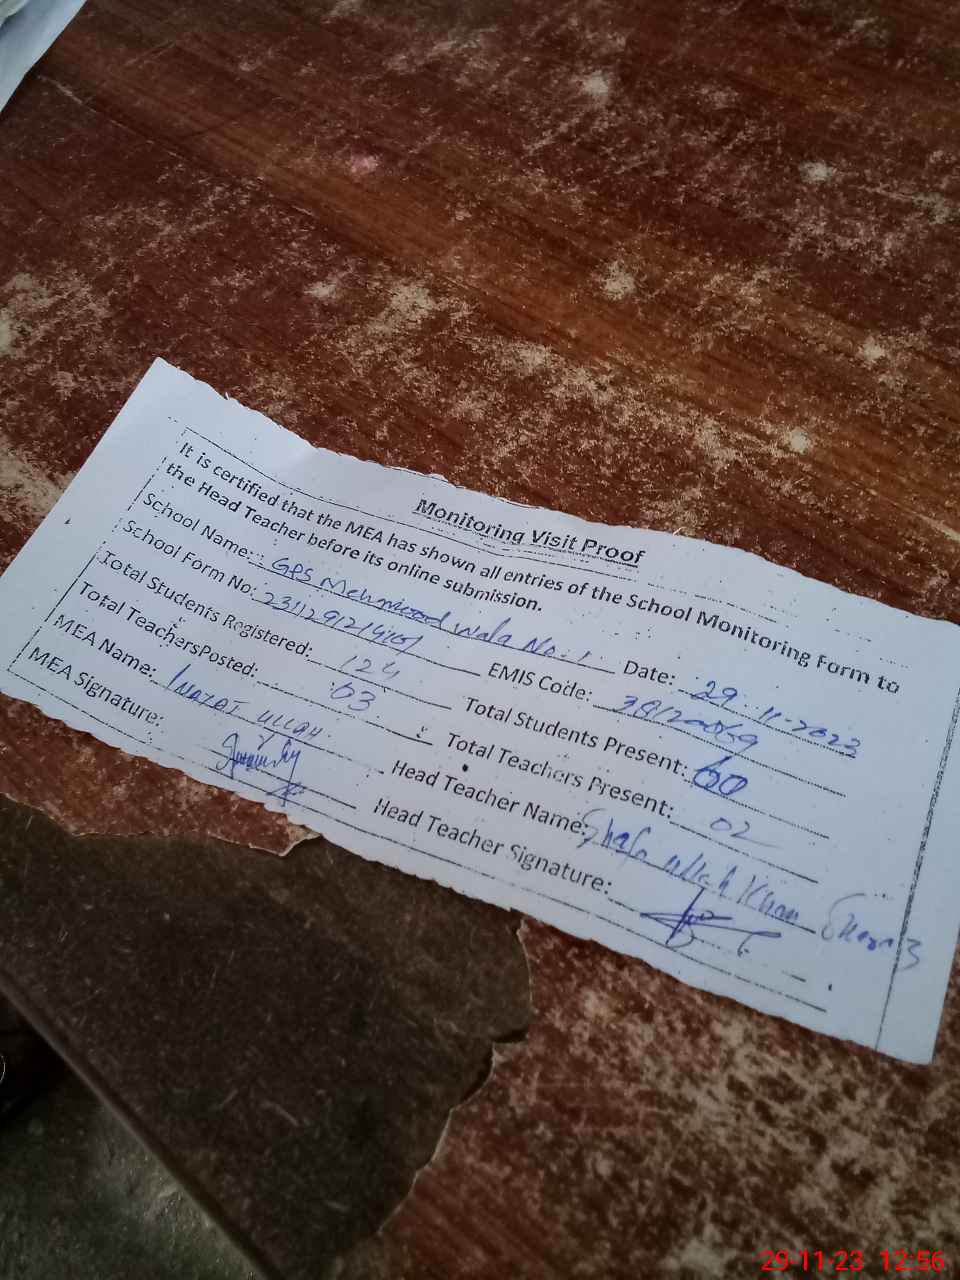 Monitoring Visit Proof
It is certified that the MEA has shown all entries of the School Monitoring Form to
the Head Teacher before its online submission.
School Name: GPS Wala No. 1 Date: 29-11-2023
School Form No: EMIS Code:
Total Students Registered: 124 Total Students Present: 60
Total TeachersPosted: 03 Total Teachers Present: 02
MEA Name: Inayat ullah Head Teacher Name: ullah Khan
MEA Signature: Head Teacher Signature:
29-11-23 12:56